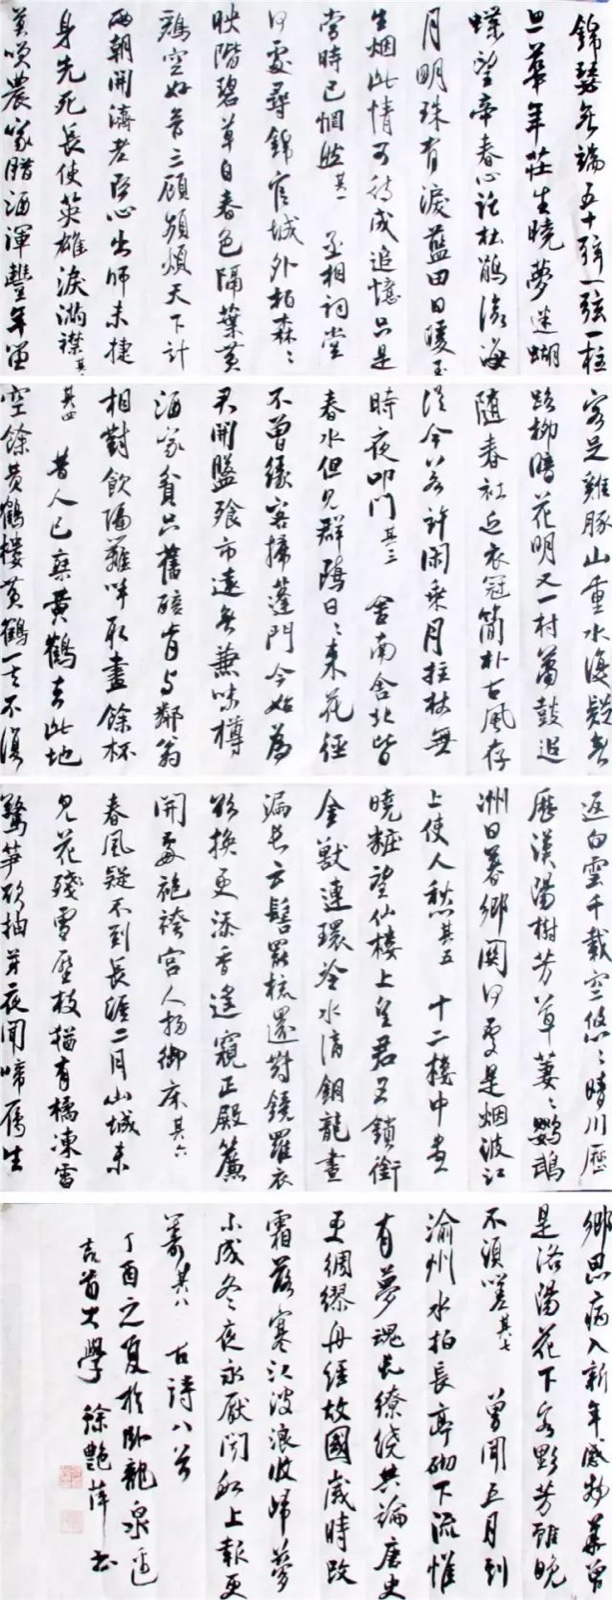 錦瑟無端五十弦一弦一柱
思華年莊生曉夢迷蝴
蝶望帝春心託杜鵑滄海
月明珠有淚藍田日暖玉
生烟此情可待成追憶只是
當時已惘然其一 丞相祠堂
何處尋錦官城外柏森〻
映階碧草自春色隔葉黃
鸝空好音三顧頻煩天下計
兩朝開濟老臣心出師未捷
身先死長使英雄淚滿襟其二
莫笑農家腊酒渾豐年留
客足雞豚山重水復疑無
路柳暗花明又一村簫鼓追
隨春社近衣冠簡朴古風存
從今若許閑乘月拄杖無
時夜叩門其三 舍南舍北皆
春水但見群鷗日〻來花徑
不曾緣客掃蓬門今始為
君開盤飧市遠無兼味樽
酒家貧只舊醅肯与鄰翁
相對飲隔籬呼取盡餘杯
其四 昔人已乘黃鶴去此地
空餘黃鶴樓黃鶴一去不復
返白雲千載空悠〻晴川歷
歷漢陽樹芳草萋〻鸚鵡
洲日暮鄉關何處是烟波江
上使人愁其五 十二樓中盡
曉粧望仙樓上望君王鎖銜
金獸連環冷水滴銅龍晝
漏長雲髻罷梳還對鏡羅衣
欲換更添香遙窺正殿簾
開處袍袴宮人掃御床其六
春風疑不到長涯二月山城未
見花殘雪壓枝猶有橘凍雷
驚笋欲抽芽夜聞啼雁生
鄉思病入新年感物華曾
是洛陽花下客野芳雖晚
不須嗟其七 曾聞五月到
渝州水拍長亭砌下流惟
有夢魂長繚繞共論唐史
更綢繆舟經故國歲時改
霜落寒江波浪收歸夢
不成冬夜永厭聞船上報更
籌其八 古詩八首
丁酉之夏於卧龍泉邊
吉首大學 徐艷萍書